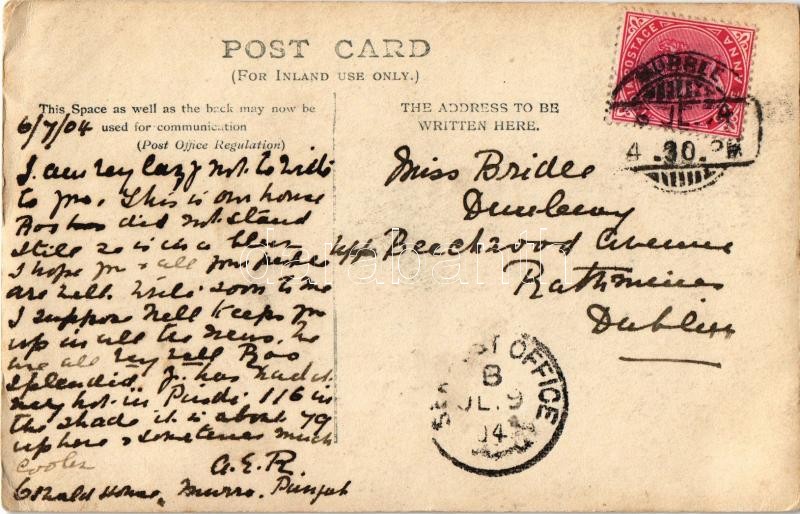 POST CARD
(FOR INLAND USE ONLY.)
This Space as well as the back may now be
used for communication
(Post Office Regulation)
THE ADDRESS TO BE
WRITTEN HERE.
POSTAGE
ANNA
4.30.PM
6/7/04
I am very lazy not to write
to you. This is our house
did not stand
still so is in a blur
I hope you & all your people
are well. Write soon to me
I suppose Nell keeps you
up in all the news. We
are all very well
splendid. J. has had it
very hot in Pindi 116 in
the shade it is about 79
up here & sometimes much
cooler
A.E.R.
House, Murree, Punjab
Miss Bridie
Dunlevy
Upp Beechwood Avenue
Rathmines
Dublin
SEA POST OFFICE
B
JL.9
04
darabanth